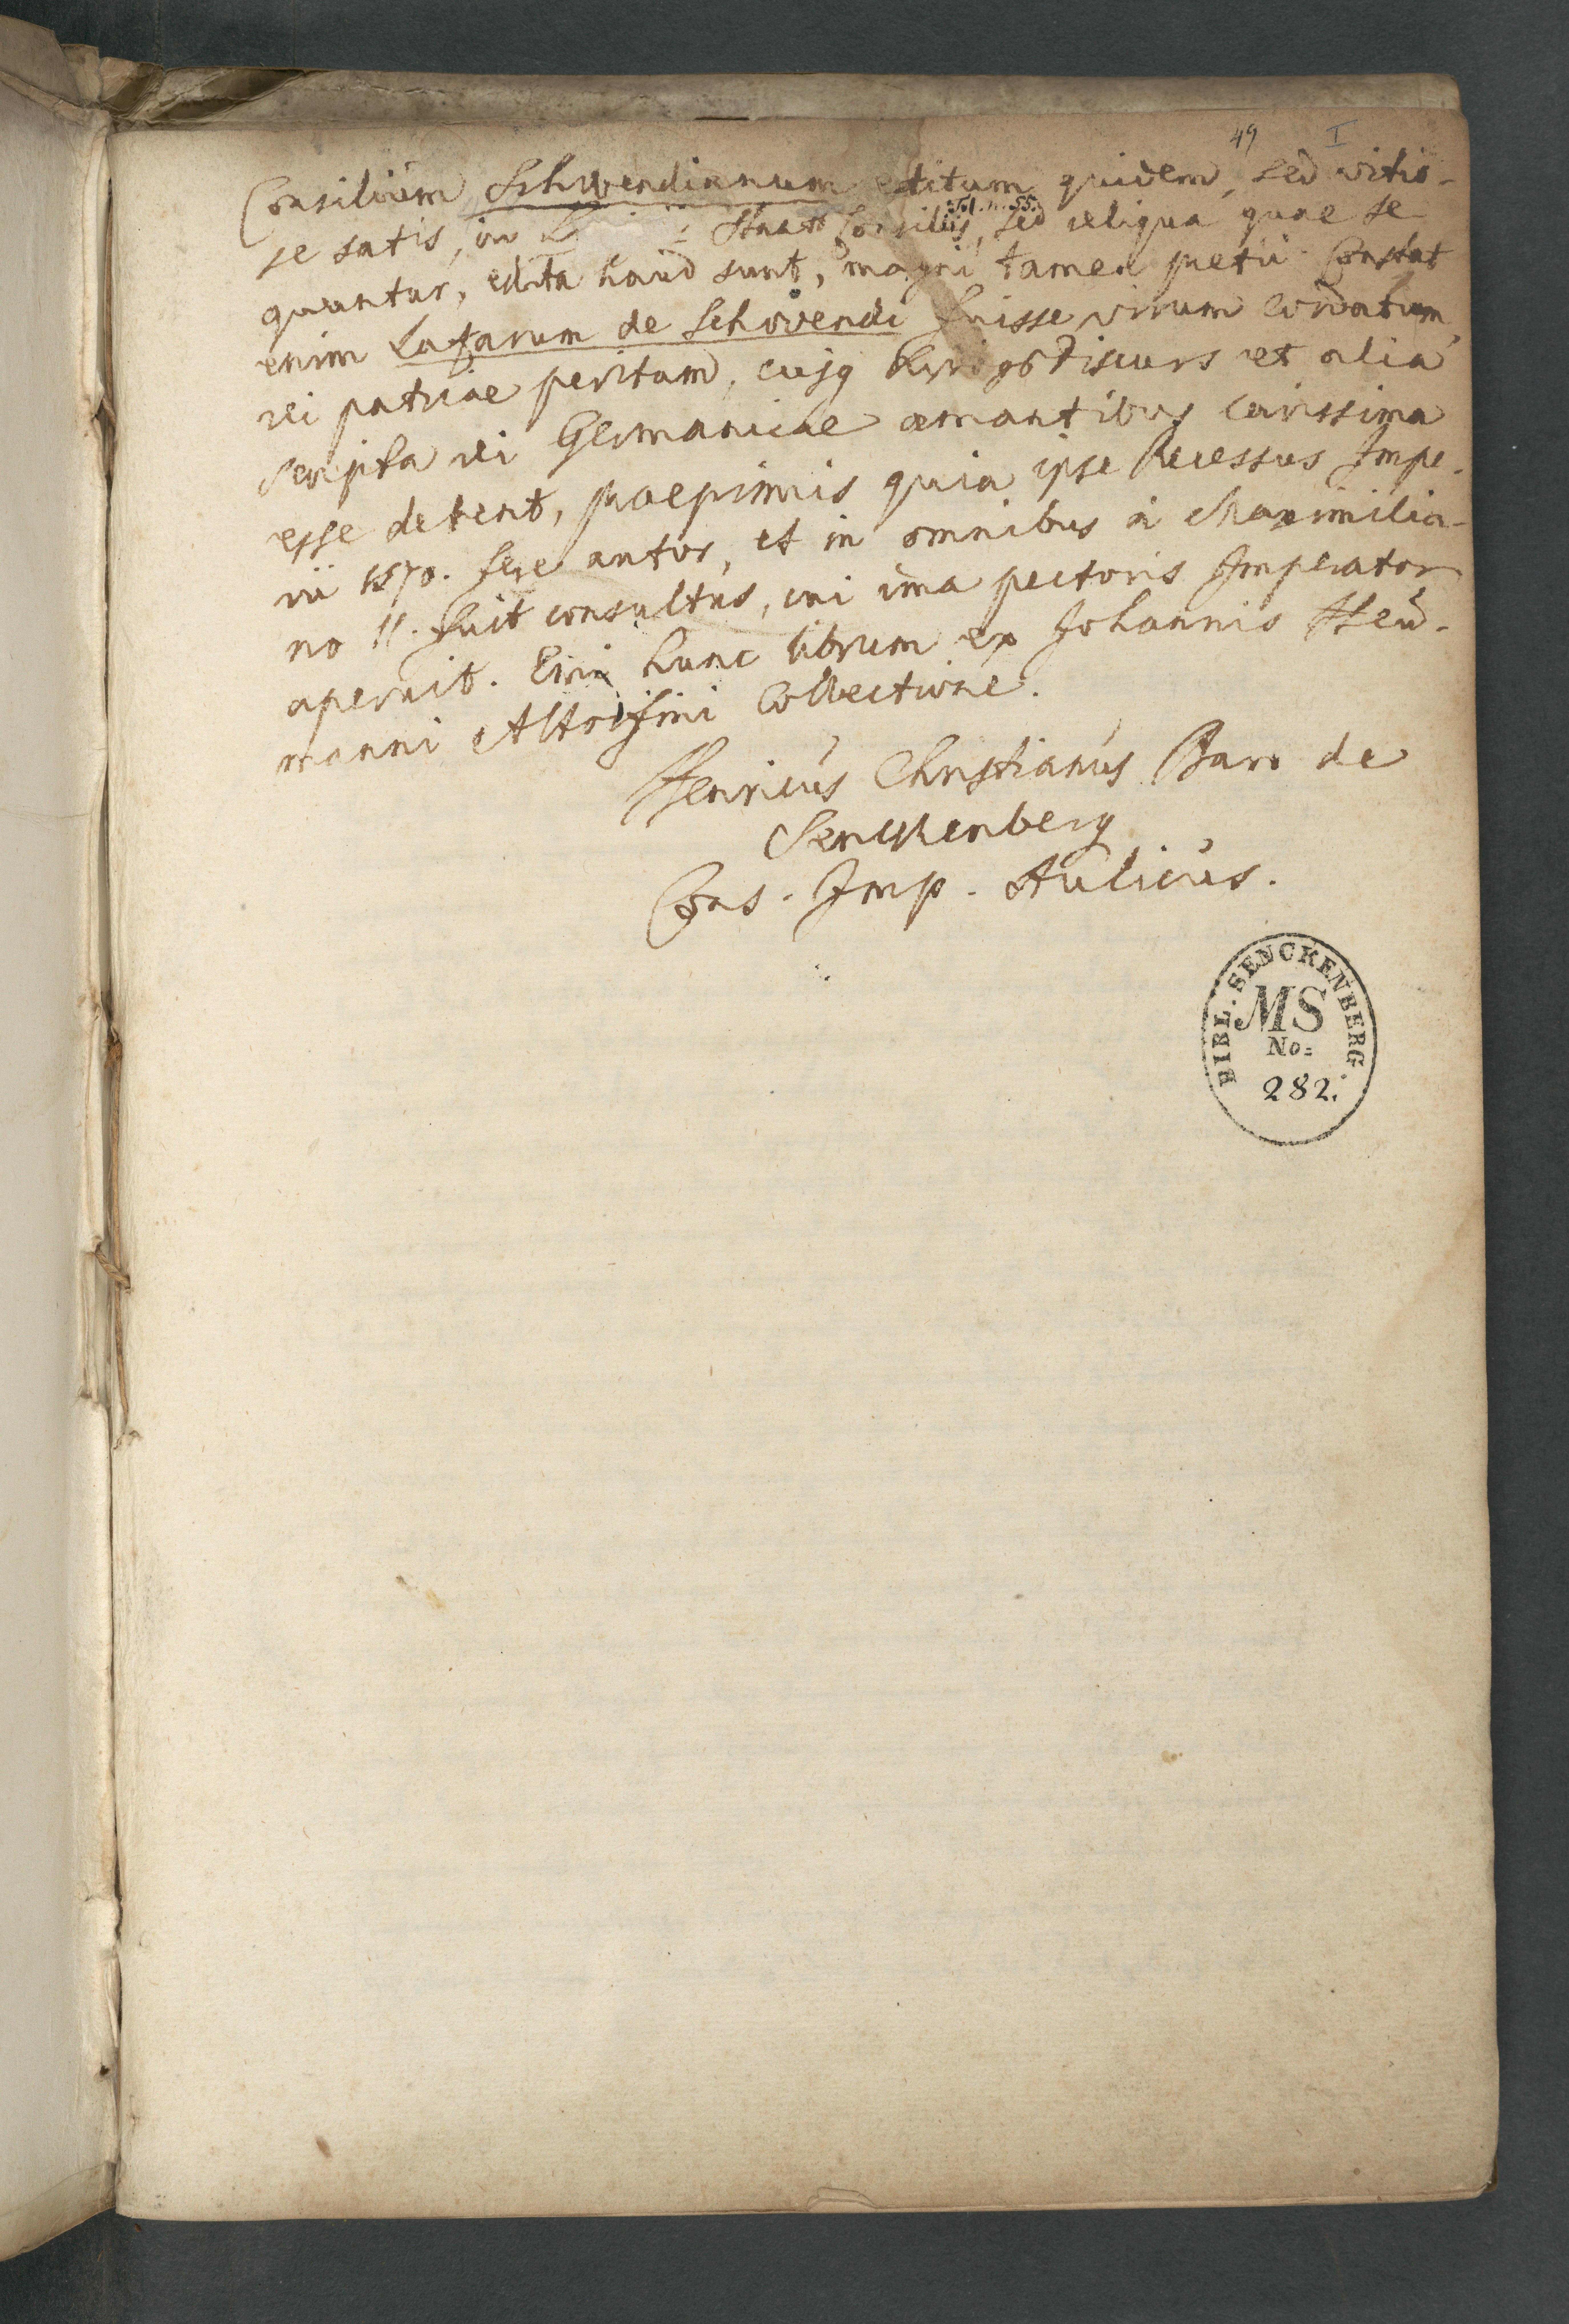 49 I
Consilium Schwendianum editum quidem, sed vitio-
se satis, in Staats Consiliis, Tol. n. 55. sed reliqua quae se
quuntur, edita haud sunt, magni tamen pretii. Constat
enim Lazarum de Schwendi fuisse virum cordatum,
rei patriae peritum, cujq Kriegs Discurs et alia
scripta rei Germanicae amantibus carissima
esse debent, praeprimis quia ipse Recessus Impe-
rii 1570. fere autor, et in omnibus a Maximilia-
no II. fuit consultus, cui ima pectoris Imperator
aperuit. Emi hunc librum ex Johannis Heu-
manni Altorfini Collectione.
Henricus Christianus Baro de
Senckenberg
Cons. Imp. Aulicus.
BIBL. SENCKENBERG.
MS
No:
282.